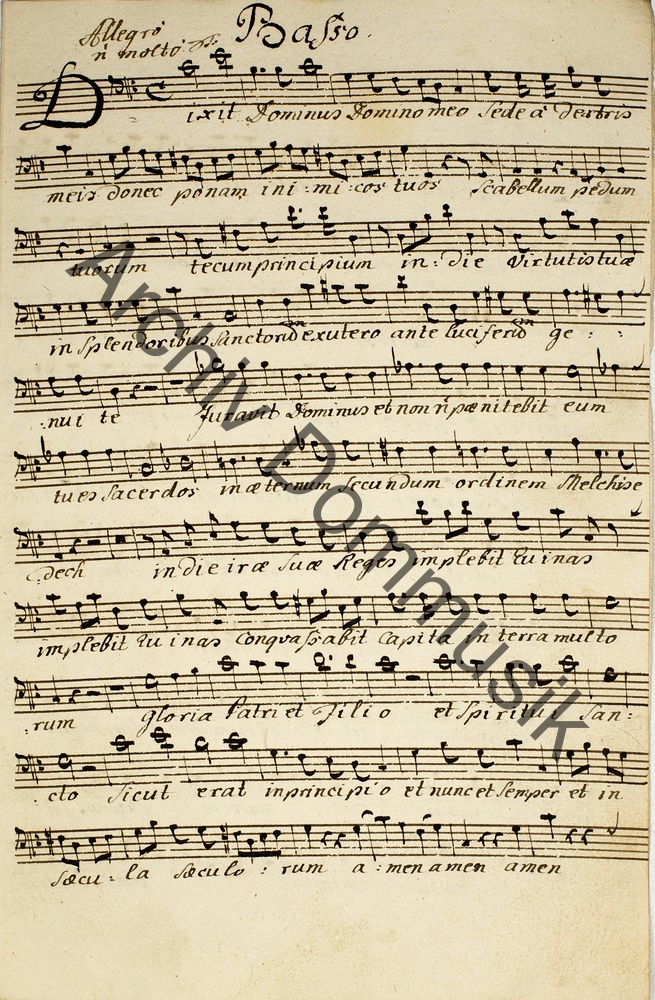 Basso.
Allegro
ñ molto
Dixit Dominus Domino meo Sede a dextris
meis donec ponam ini: mi: cos tuos Scabellum pedum
tuorum tecum principium in: die Virtutis tuæ
in Splendoribus Sanctorũ exutero ante luciferũ ge: :
:nui te Juravit Dominus et non pænitebit eum
tu es Sacerdos in æternum Secundum ordinem Melchise
:dech in die iræ Suæ Reges implebit Ruinas
implebit Ruinas Conquassabit Capita in terra multo
:rum Gloria Patri et Filio et Spiritui San:
:cto Sicut erat in principio et nunc et Semper et in
sæcu: la sæculo: rum a: men amen amen
Archiv Dommusik